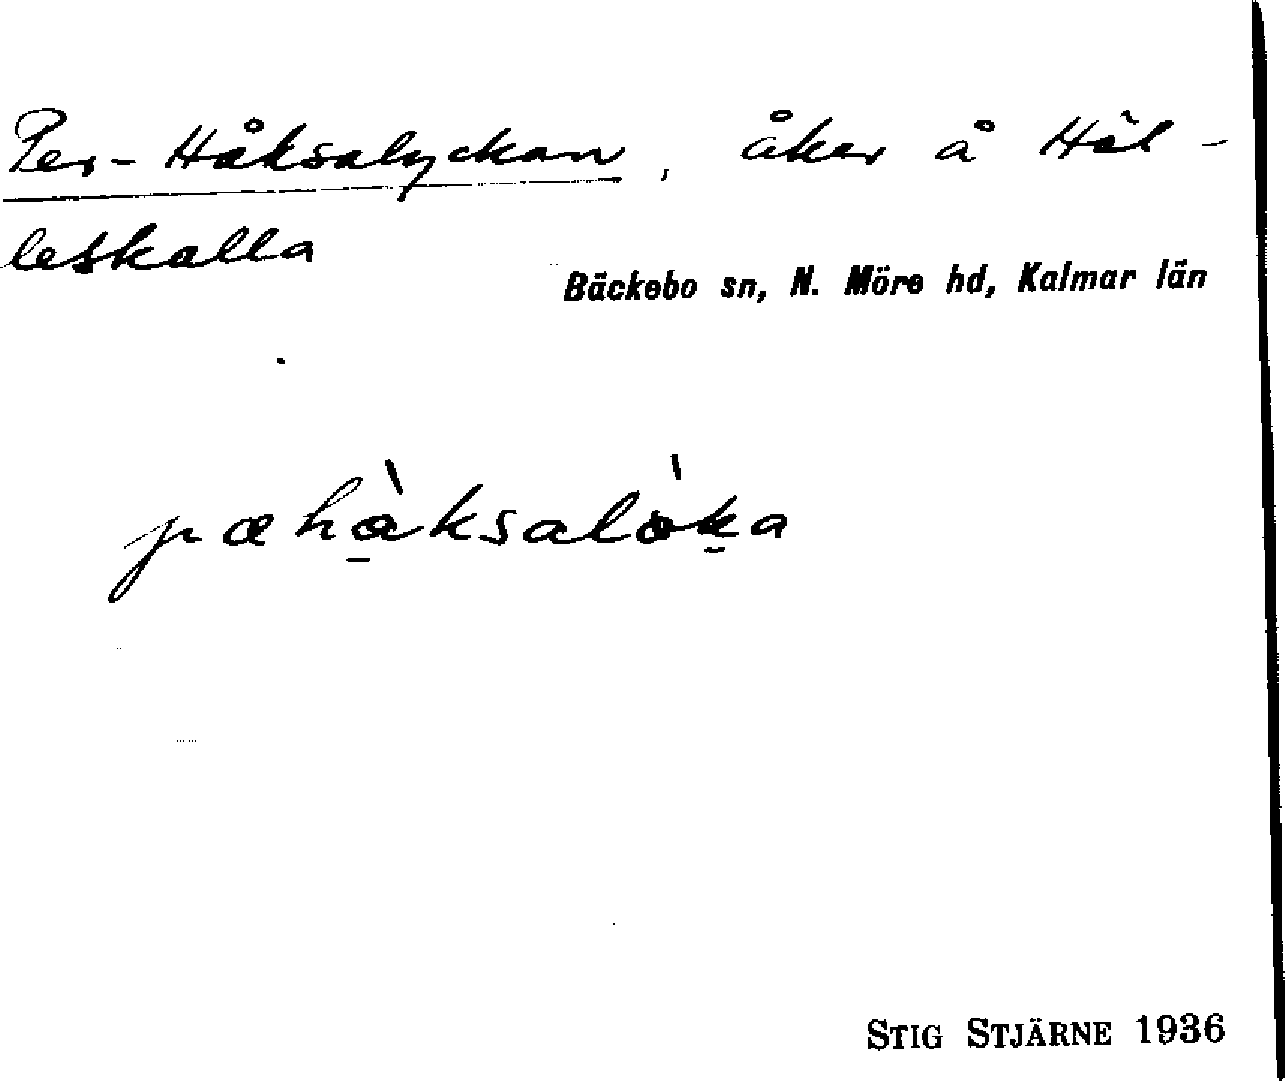 Per-Håksalyckan, åker å Häl-
leskalla
Bäckebo sn, N. Möre hd, Kalmar län
pæhàksalòka
STIG STJÄRNE 1936